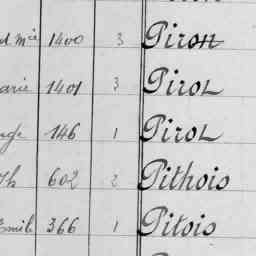 d Mie 1400 3 Piron
arie 1401 3 Pirol
146 1 Pirol
Th 602 2 Pithois
Emile 366 1 Pitois